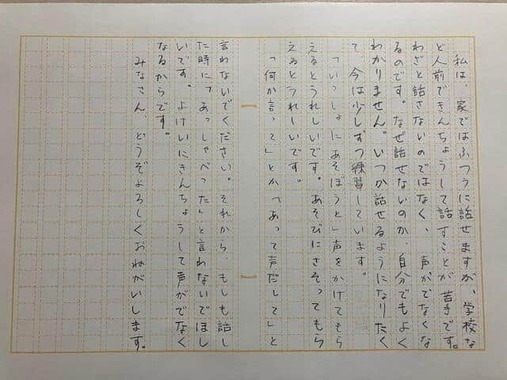 私は、家ではふつうに話せますが、学校な
ど人前できんちょうして話すことが苦手です。
わざと話さないのではなく、声がでなくな
るのです。なぜ話せないのか、自分でもよく
わかりません。いつか話せるようになりたく
て、今は少しずつ練習しています。
「いっしょにあそぼうと」声をかけてもら
えるとうれしいです。あそびにさそってもら
えるとうれしいです。
「何か言って」とか「あって声だして」と
言わないでください。それから、もしも話し
た時に「あっしゃべった」と言わないでほし
いです。よけいにきんちょうして声がでなく
なるからです。
みなさん、どうぞよろしくおねがいします。